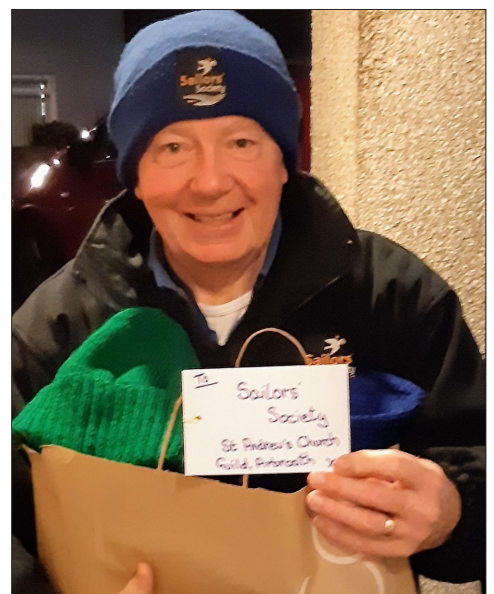 Sailors'
Society
Sailors'
To
Sailors'
Society
St Andrew's Church
Guild, Arbroath